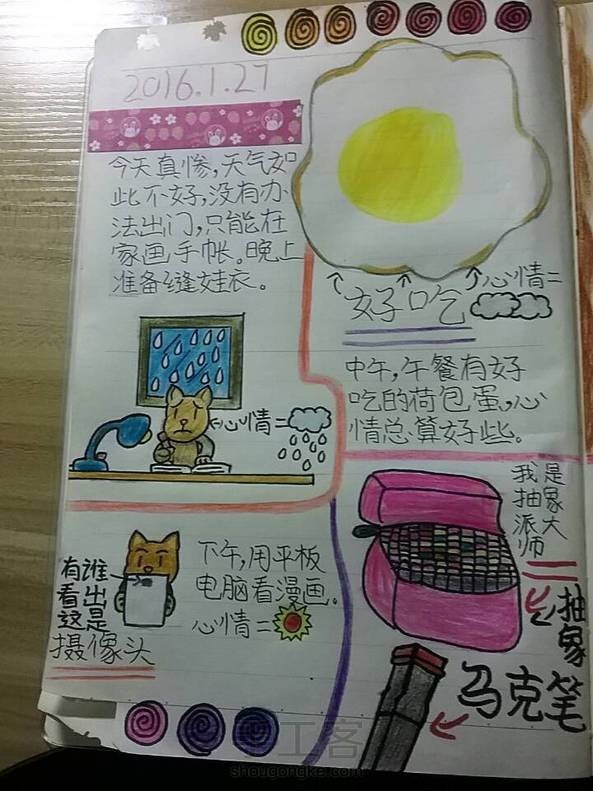 2016.1.27
今天真惨,天气如
此不好,没有办
法出门,只能在
家画手帐。晚上
准备缝娃衣。
心情=
好吃
心情=
中午,午餐有好
吃的荷包蛋,心
情总算好些。
有谁
看出
这是
摄像头
下午,用平板
电脑看漫画。
心情=
我是
抽象
派大
师
抽象
马克笔
手工客
shougongke.com